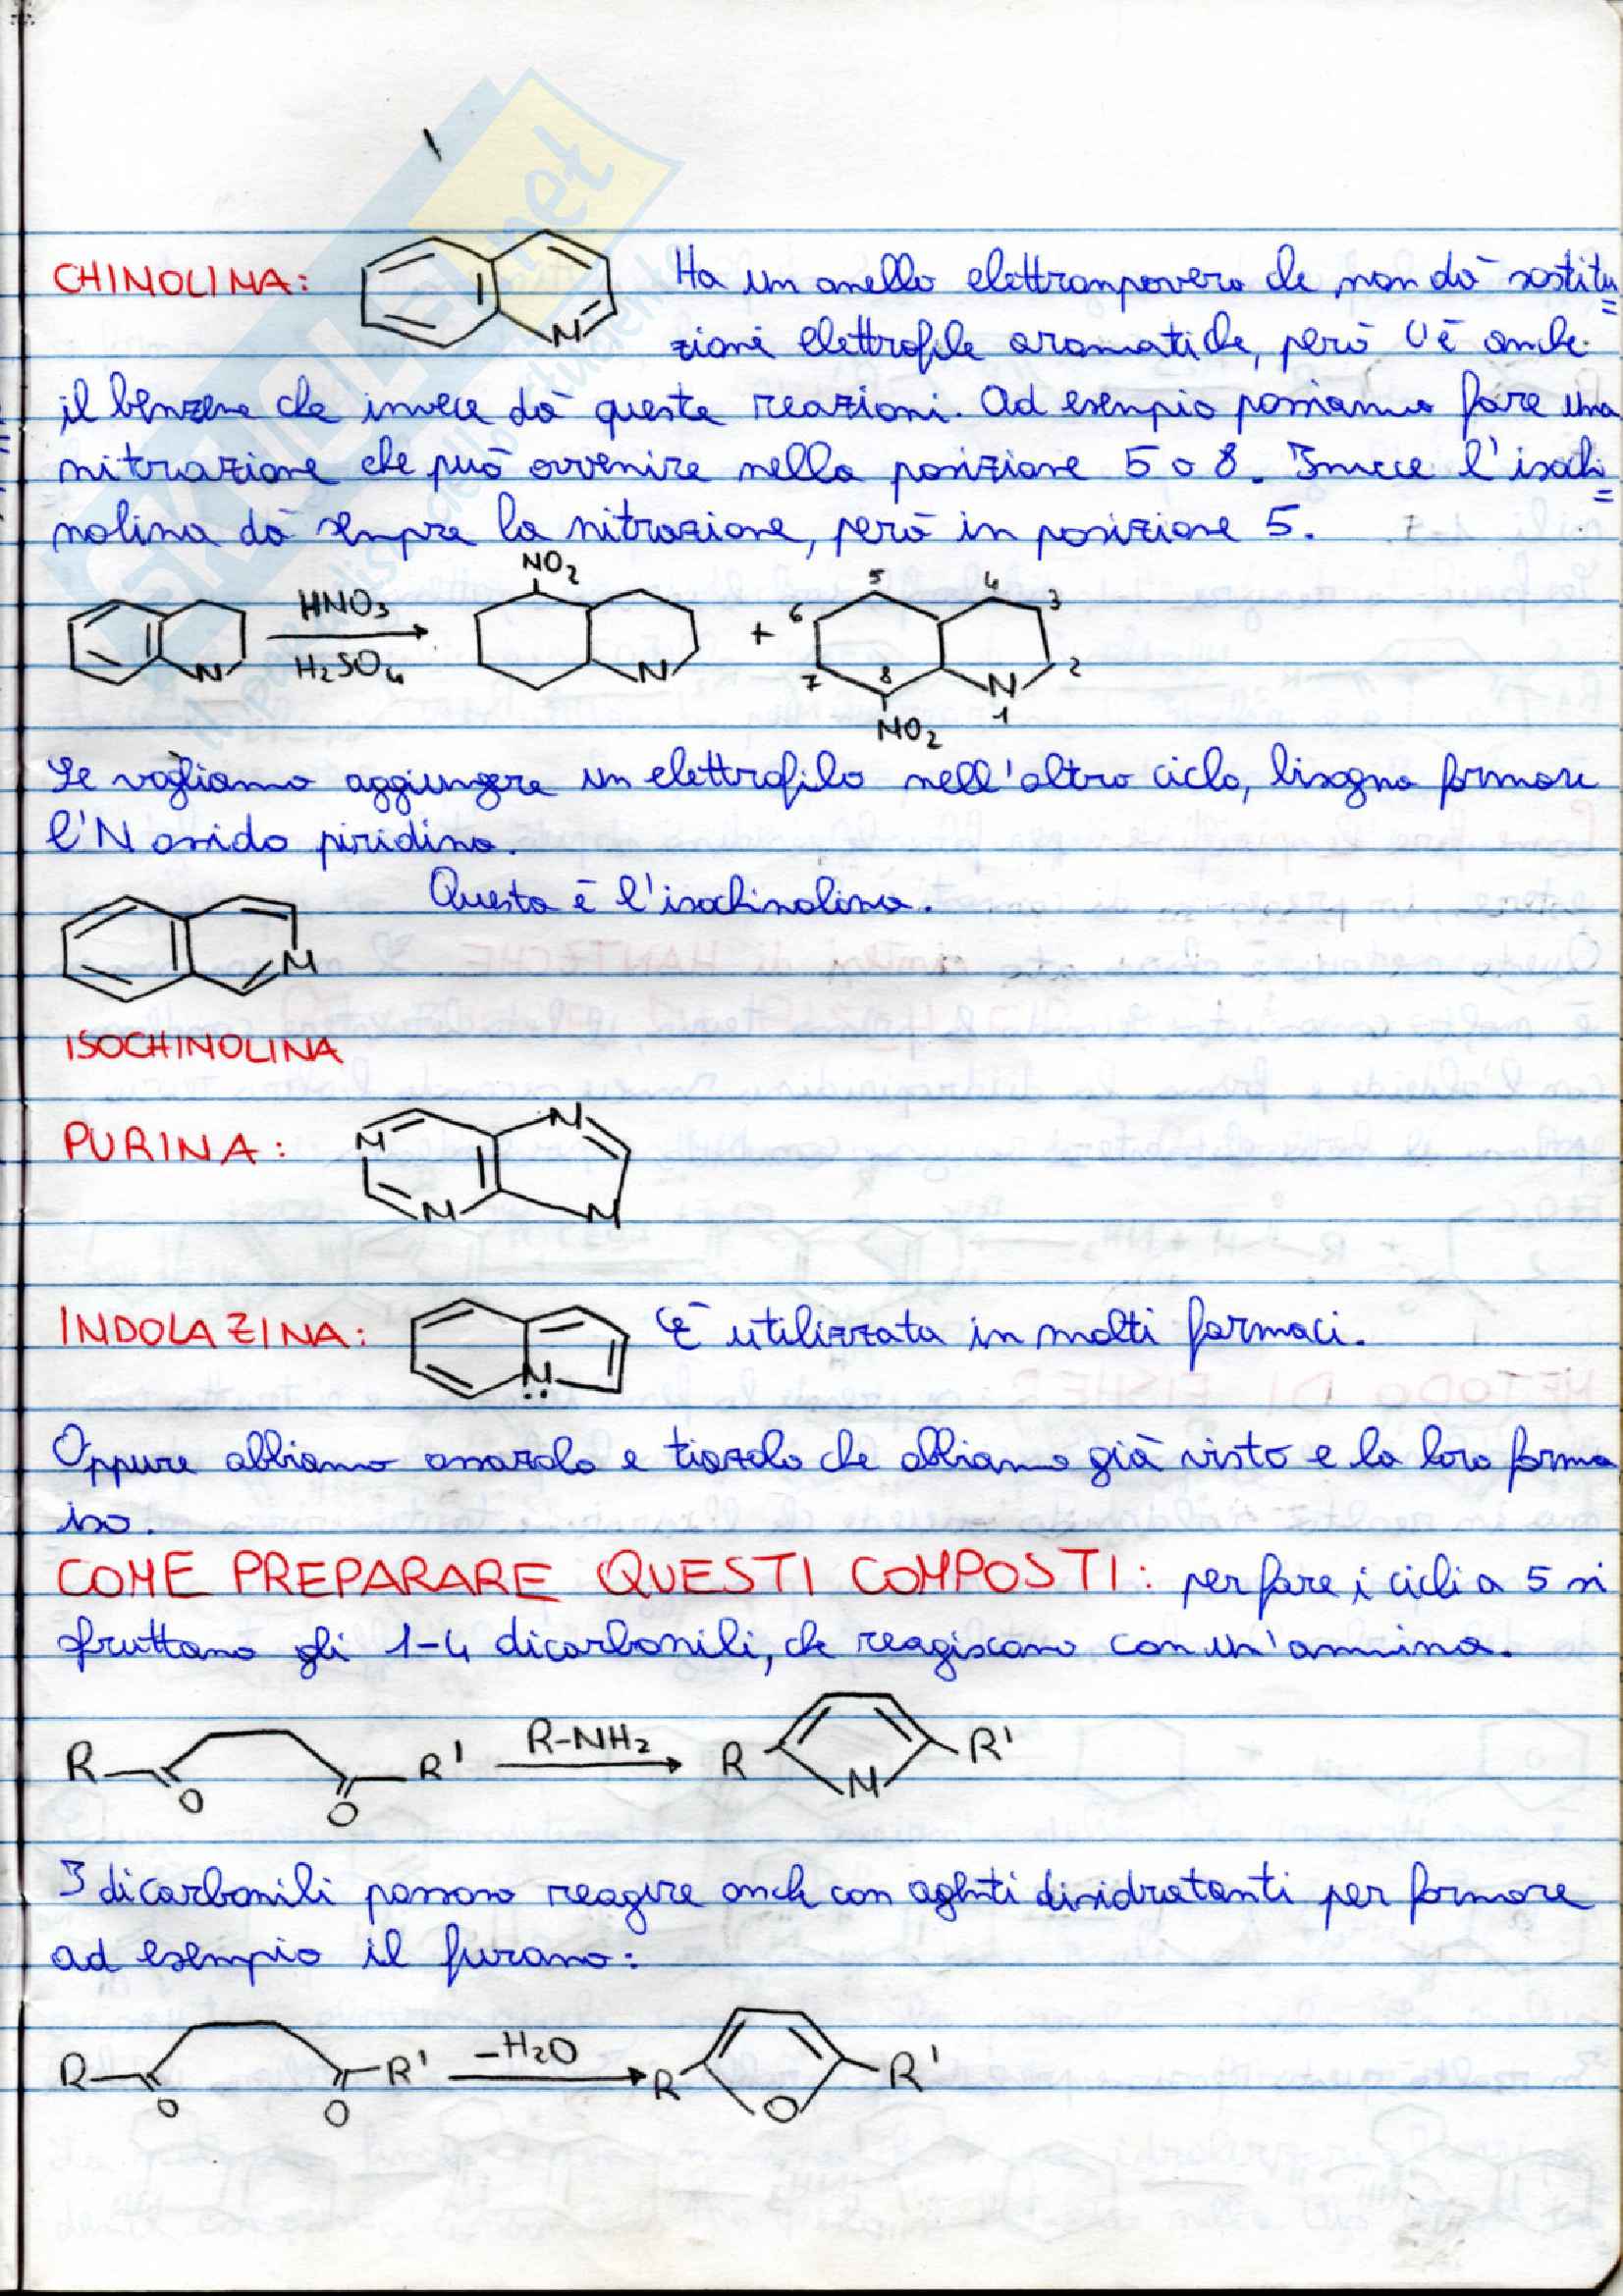 CHINOLINA: Ha un anello elettronpovero che non dà sostitu
zioni elettrofile aromatiche, però c'è anche
il benzene che invece dà queste reazioni. Ad esempio possiamo fare una
nitrazione che può avvenire nella posizione 5 o 8. Invece l'isochi
nolina dà sempre la nitrazione, però in posizione 5.
N
HNO3
H2SO4
NO2
N
+
5
4
6
3
7
8
2
N
1
NO2
Se vogliamo aggiungere un elettrofilo nell'altro ciclo, bisogna formare
l'N ossido piridina.
Questa è l'isochinolina.
N
ISOCHINOLINA
PURINA: N N
N N
INDOLAZINA: N È utilizzata in molti farmaci.
Oppure abbiamo ossazolo e tiazolo che abbiamo già visto e la loro forma
iso.
COME PREPARARE QUESTI COMPOSTI: per fare i cicli a 5 si
sfruttano gli 1-4 dicarbonili, che reagiscono con un'ammina.
R O O R' R-NH2 R N R'
I dicarbonili possono reagire anche con agenti disidratanti per formare
ad esempio il furano:
R O O R' -H2O R O R'
SKUOLA.net
il paradiso dello studente